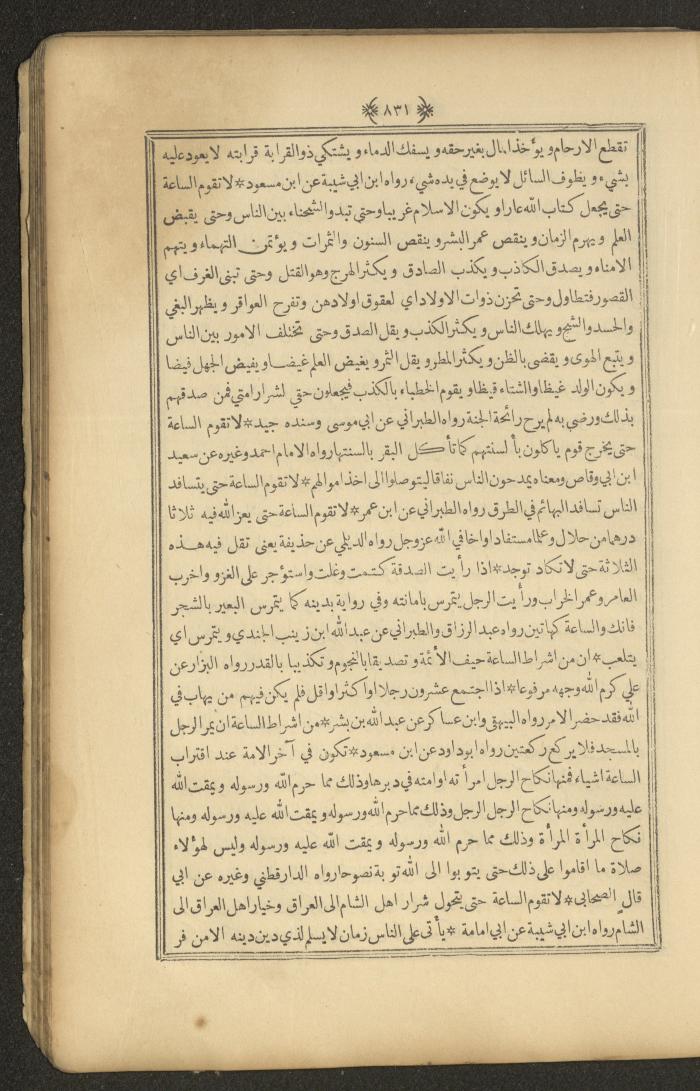 ٨٣١
تقطع الارحام ويؤخذ المال بغير حقه ويسفك الدماء ويشتكي ذوالقرابة قرابته لا يعود عليه
بشيء ويطوف السائل لا يوضع في يده شيء رواه ابن ابي شيبة عن ابن مسعود * لا تقوم الساعة
حتى يجعل كتاب الله عارا ويكون الاسلام غريبا وحتى تبدو الشحناء بين الناس وحتى يقبض
العلم ويهرم الزمان وينقص عمر البشر وينقص السنون والثمرات ويؤتمن التهماء ويتهم
الامناء ويصدق الكاذب ويكذب الصادق ويكثر الهرج وهو القتل وحتى تبنى الغرف اي
القصور فتطاول وحتى تحزن ذوات الاولاد اي لعقوق اولادهن وتفرح العواقر ويظهر البغي
والحسد والشح ويهلك الناس ويكثر الكذب ويقل الصدق وحتى تختلف الامور بين الناس
ويتبع الهوى ويقضى بالظن ويكثر المطر ويقل الثمر ويغيض العلم غيضا ويفيض الجهل فيضا
ويكون الولد غيظا والشتاء قيظا ويقوم الخطباء بالكذب فيجعلون حقي لشرار امتي فمن صدقهم
بذلك ورضي به لم يرح رائحة الجنة رواه الطبراني عن ابي موسى وسنده جيد * لا تقوم الساعة
حتى يخرج قوم ياكلون بألسنتهم كما تأكل البقر بالسنتها رواه الامام احمد وغيره عن سعيد
ابن ابي وقاص ومعناه يمدحون الناس نفاقا ليتوصلوا الى اخذ اموالهم * لا تقوم الساعة حتى يتسافد
الناس تسافد البهائم في الطرق رواه الطبراني عن ابن عمر * لا تقوم الساعة حتى يعز الله فيه ثلاثا
درهما من حلال وعلما مستفادا واخا في الله عزوجل رواه الديلمي عن حذيفة يعنى تقل فيه هذه
الثلاثة حتى لا تكاد توجد * اذا رأيت الصدقة كتمت وغلت واستؤجر على الغزو واخرب
العامر وعمر الخراب ورأيت الرجل يتمرس بامانته وفي رواية بدينه كما يتمرس البعير بالشجر
فانك والساعة كهاتين رواه عبد الرزاق والطبراني عن عبد الله ابن زينب الجندي ويتمرس اي
يتلعب * ان من اشراط الساعة حيف الأئمة وتصديقا بالنجوم وتكذيبا بالقدر رواه البزار عن
علي كرم الله وجهه مرفوعا * اذا اجتمع عشرون رجلا او اكثر او اقل فلم يكن فيهم من يهاب في
الله فقد حضر الامر رواه البيهقي وابن عساكر عن عبد الله بن بشر * من اشراط الساعة ان يمر الرجل
بالمسجد فلا يركع ركعتين رواه ابو داود عن ابن مسعود * تكون في آخر الامة عند اقتراب
الساعة اشياء فمنها نكاح الرجل امرأته او امته في دبرها وذلك مما حرم الله ورسوله ويمقت الله
عليه ورسوله ومنها نكاح الرجل الرجل وذلك مما حرم الله ورسوله ويمقت الله عليه ورسوله ومنها
نكاح المرأة المرأة وذلك مما حرم الله ورسوله ويمقت الله عليه ورسوله وليس لهؤلاء
صلاة ما اقاموا على ذلك حتى يتوبوا الى الله توبة نصوحا رواه الدارقطني وغيره عن ابي
قال الصحابى * لا تقوم الساعة حتى يتحول شرار اهل الشام الى العراق وخيار اهل العراق الى
الشام رواه ابن ابي شيبة عن ابي امامة * يأتى على الناس زمان لا يسلم لذي دين دينه الا من فر